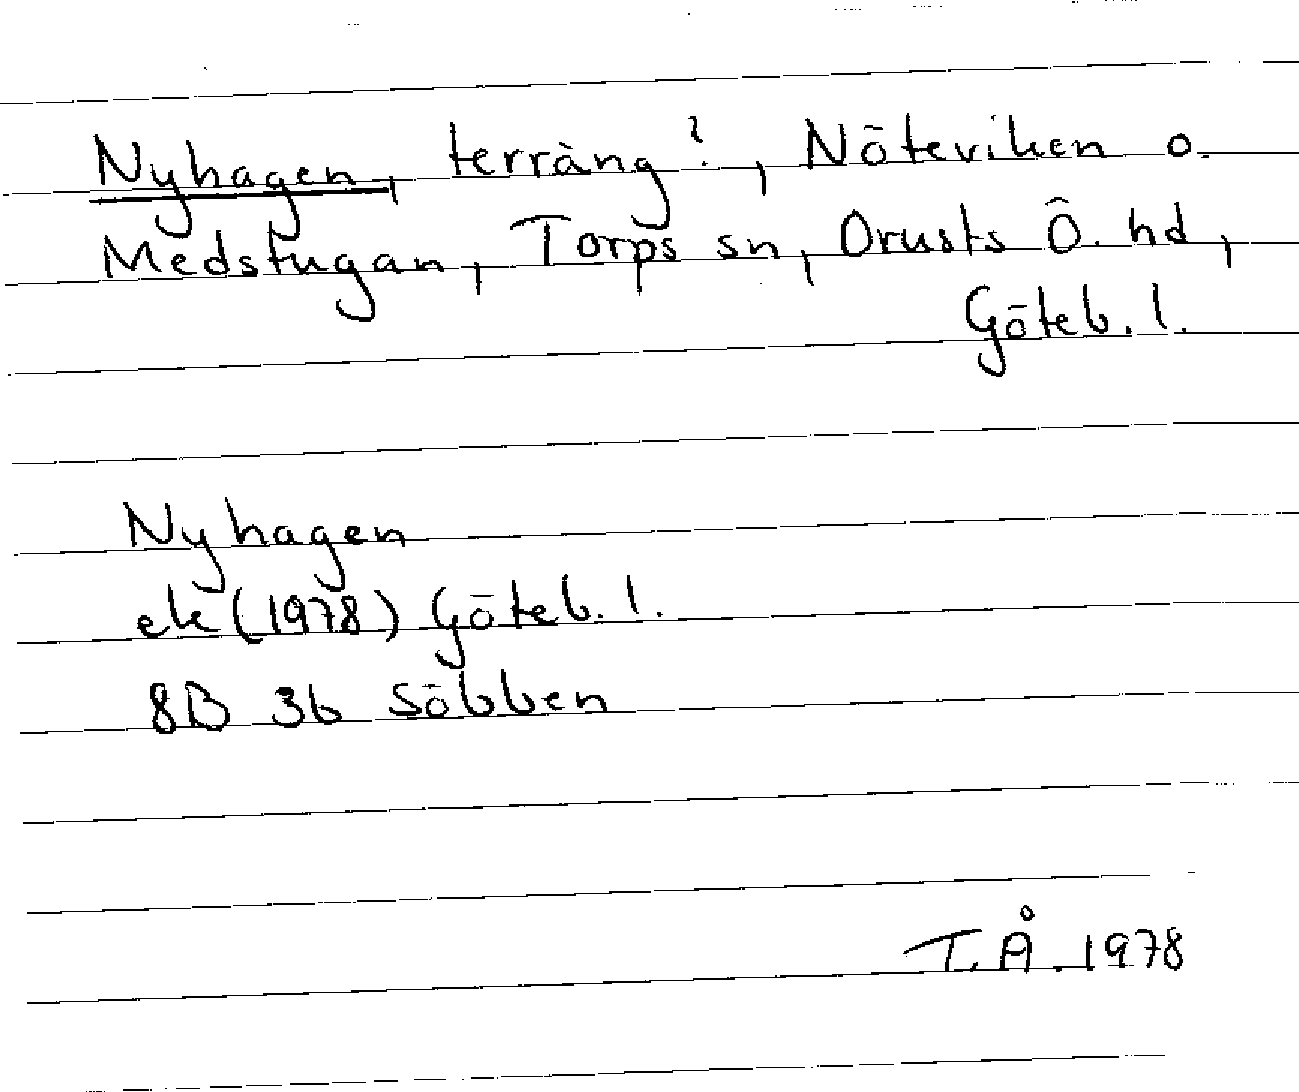 Nyhagen, terräng?, Nöteviken o.
Medstugan, Torps sn, Orusts Ö. hd,
Göteb. l.
Nyhagen
ek (1978) Göteb. l.
8B 3b Söbben
T. Å. 1978